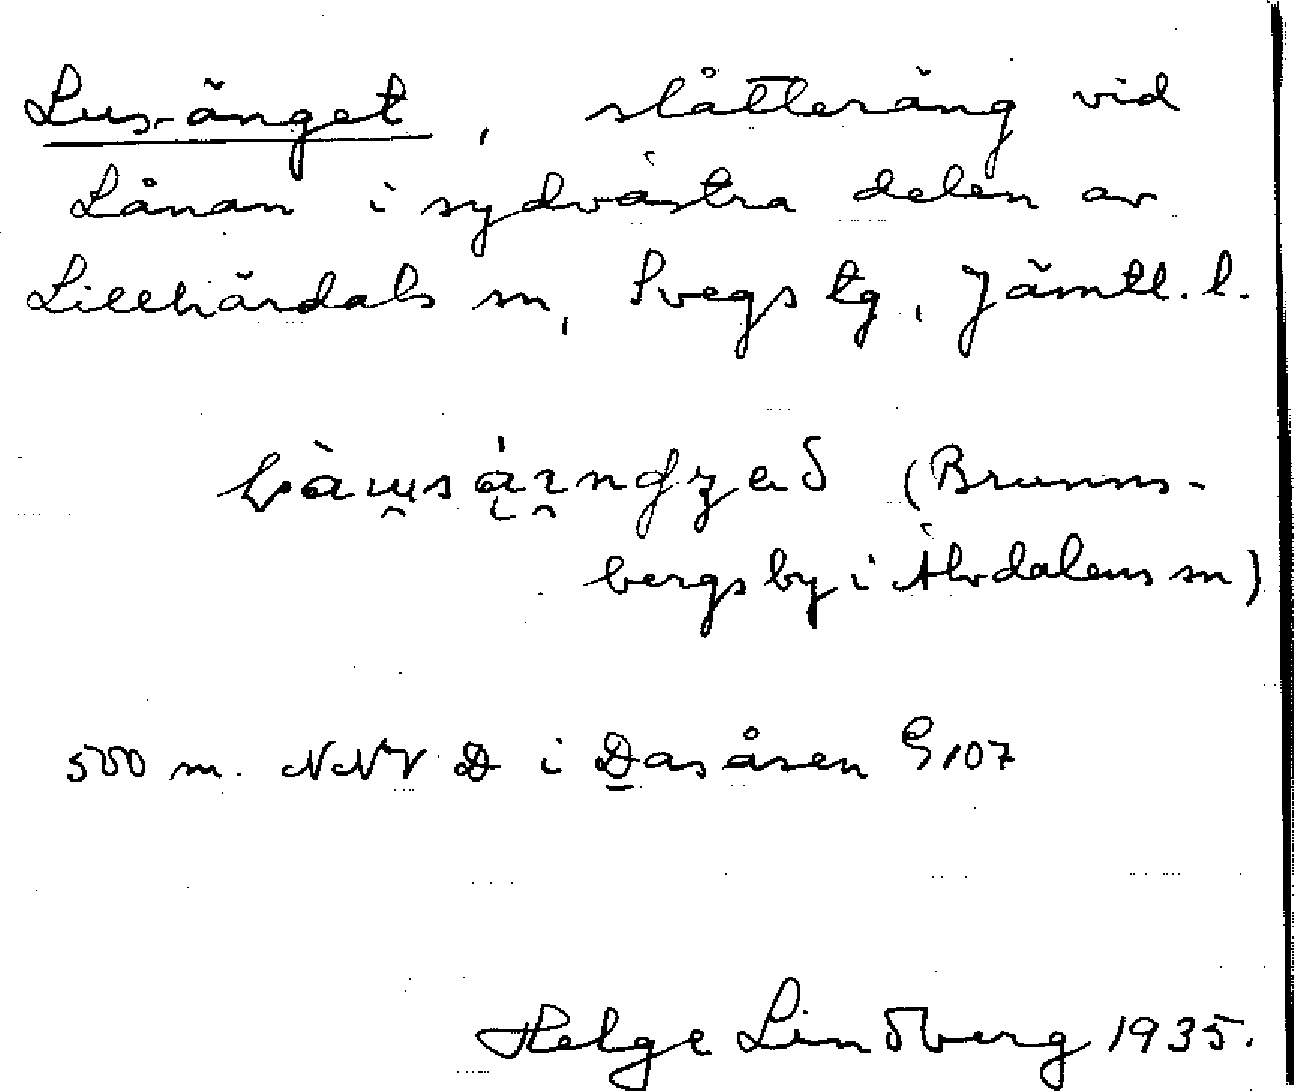 Lus-änget, slåtteräng vid
Lånan i sydvästra delen av
Lillhärdals sn, Svegs tg, Jämtl. l.
(Brunns-
bergs by i Älvdalens sn)
500 m. NNV D i Dasåsen G107
Helge Lindberg 1935.